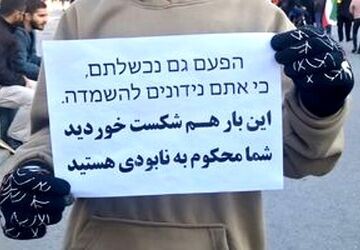 הפעם גם נכשלתם,
כי אתם נידונים להשמדה.
این بار هم شکست خوردید
شما محکوم به نابودی هستید